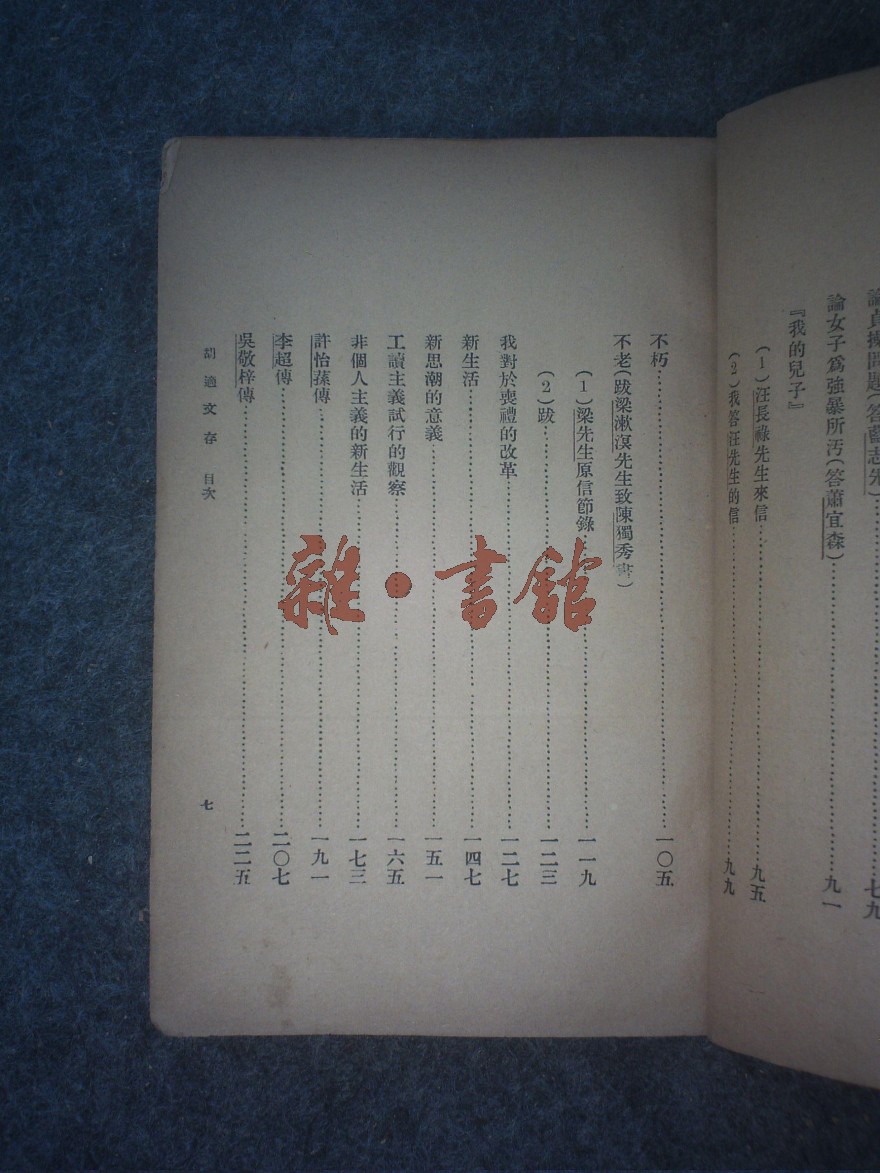 論貞操問題(答藍志先)……七九
論女子爲強暴所汚(答蕭宜森)……九一
『我的兒子』
(1)汪長祿先生來信……九五
(2)我答汪先生的信……九九
不朽……一〇五
不老(跋梁漱溟先生致陳獨秀書)
(1)梁先生原信節錄……一一九
(2)跋……一二三
我對於喪禮的改革……一二七
新生活……一四七
新思潮的意義……一五一
工讀主義試行的觀察……一六五
非個人主義的新生活……一七三
許怡蓀傳……一九一
李超傳……二〇七
吳敬梓傳……二二五
胡適文存 目次
七
雜·書館